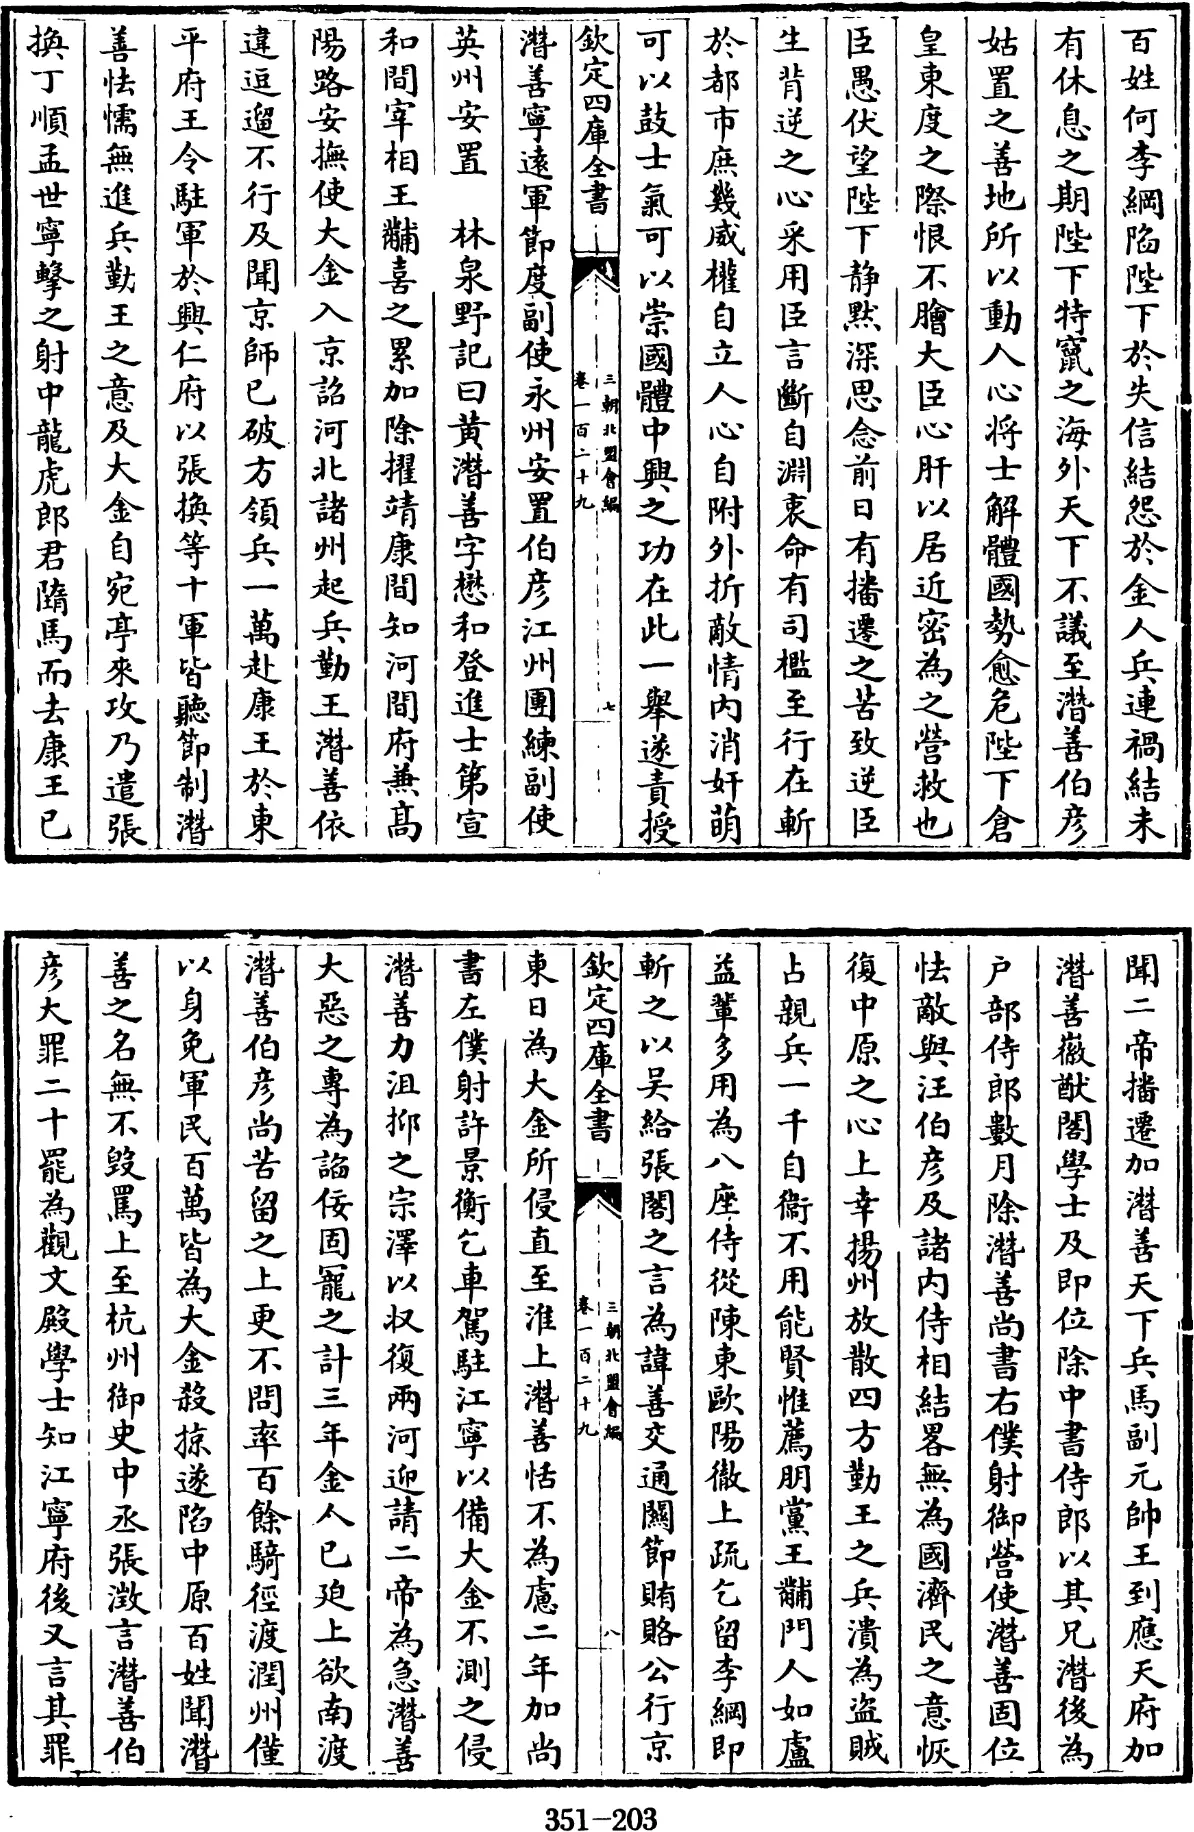 百姓何李綱陷陛下於失信結怨於金人兵連禍結未
有休息之期陛下特竄之海外天下不議至潛善伯彥
姑置之善地所以動人心將士解體國勢愈危陛下倉
皇東度之際恨不膾大臣心肝以居近密為之營救也
臣愚伏望陛下靜默深思念前日有播遷之苦致逆臣
生背逆之心采用臣言斷自淵衷命有司檻至行在斬
於都市庶幾威權自立人心自附外折敵情内消奸萌
可以鼓士氣可以崇國體中興之功在此一舉遂責授
欽定四庫全書
三朝北盟會編
卷一百二十九
七
潛善寧遠軍節度副使永州安置伯彥江州團練副使
英州安置 林泉野記曰黃潛善字懋和登進士第宣
和間宰相王黼喜之累加除擢靖康間知河間府兼高
陽路安撫使大金入京詔河北諸州起兵勤王潛善依
違逗遛不行及聞京師已破方領兵一萬赴康王於東
平府王令駐軍於興仁府以張換等十軍皆聽節制潛
善怯懦無進兵勤王之意及大金自宛亭來攻乃遣張
換丁順孟世寧擊之射中龍虎郎君隨馬而去康王已
聞二帝播遷加潛善天下兵馬副元帥王到應天府加
潛善徽猷閣學士及即位除中書侍郎以其兄潛後為
户部侍郎數月除潛善尚書右僕射御營使潛善固位
怯敵與汪伯彥及諸内侍相結畧無為國濟民之意恢
復中原之心上幸揚州放散四方勤王之兵潰為盜賊
占親兵一千自衞不用能賢惟薦朋黨王黼門人如盧
益輩多用為八座侍從陳東歐陽徹上疏乞留李綱即
斬之以吴給張闇之言為諱善交通關節賄賂公行京
欽定四庫全書
三朝北盟會編
卷一百二十九
八
東日為大金所侵直至淮上潛善恬不為慮二年加尚
書左僕射許景衡乞車駕駐江寧以備大金不測之侵
潛善力沮抑之宗澤以収復兩河迎請二帝為急潛善
大惡之專為諂佞固寵之計三年金人已廹上欲南渡
潛善伯彥尚苦留之上更不問率百餘騎徑渡潤州僅
以身免軍民百萬皆為大金殺掠遂陷中原百姓聞潛
善之名無不毀罵上至杭州御史中丞張澂言潛善伯
彥大罪二十罷為觀文殿學士知江寧府後又言其罪
351-203